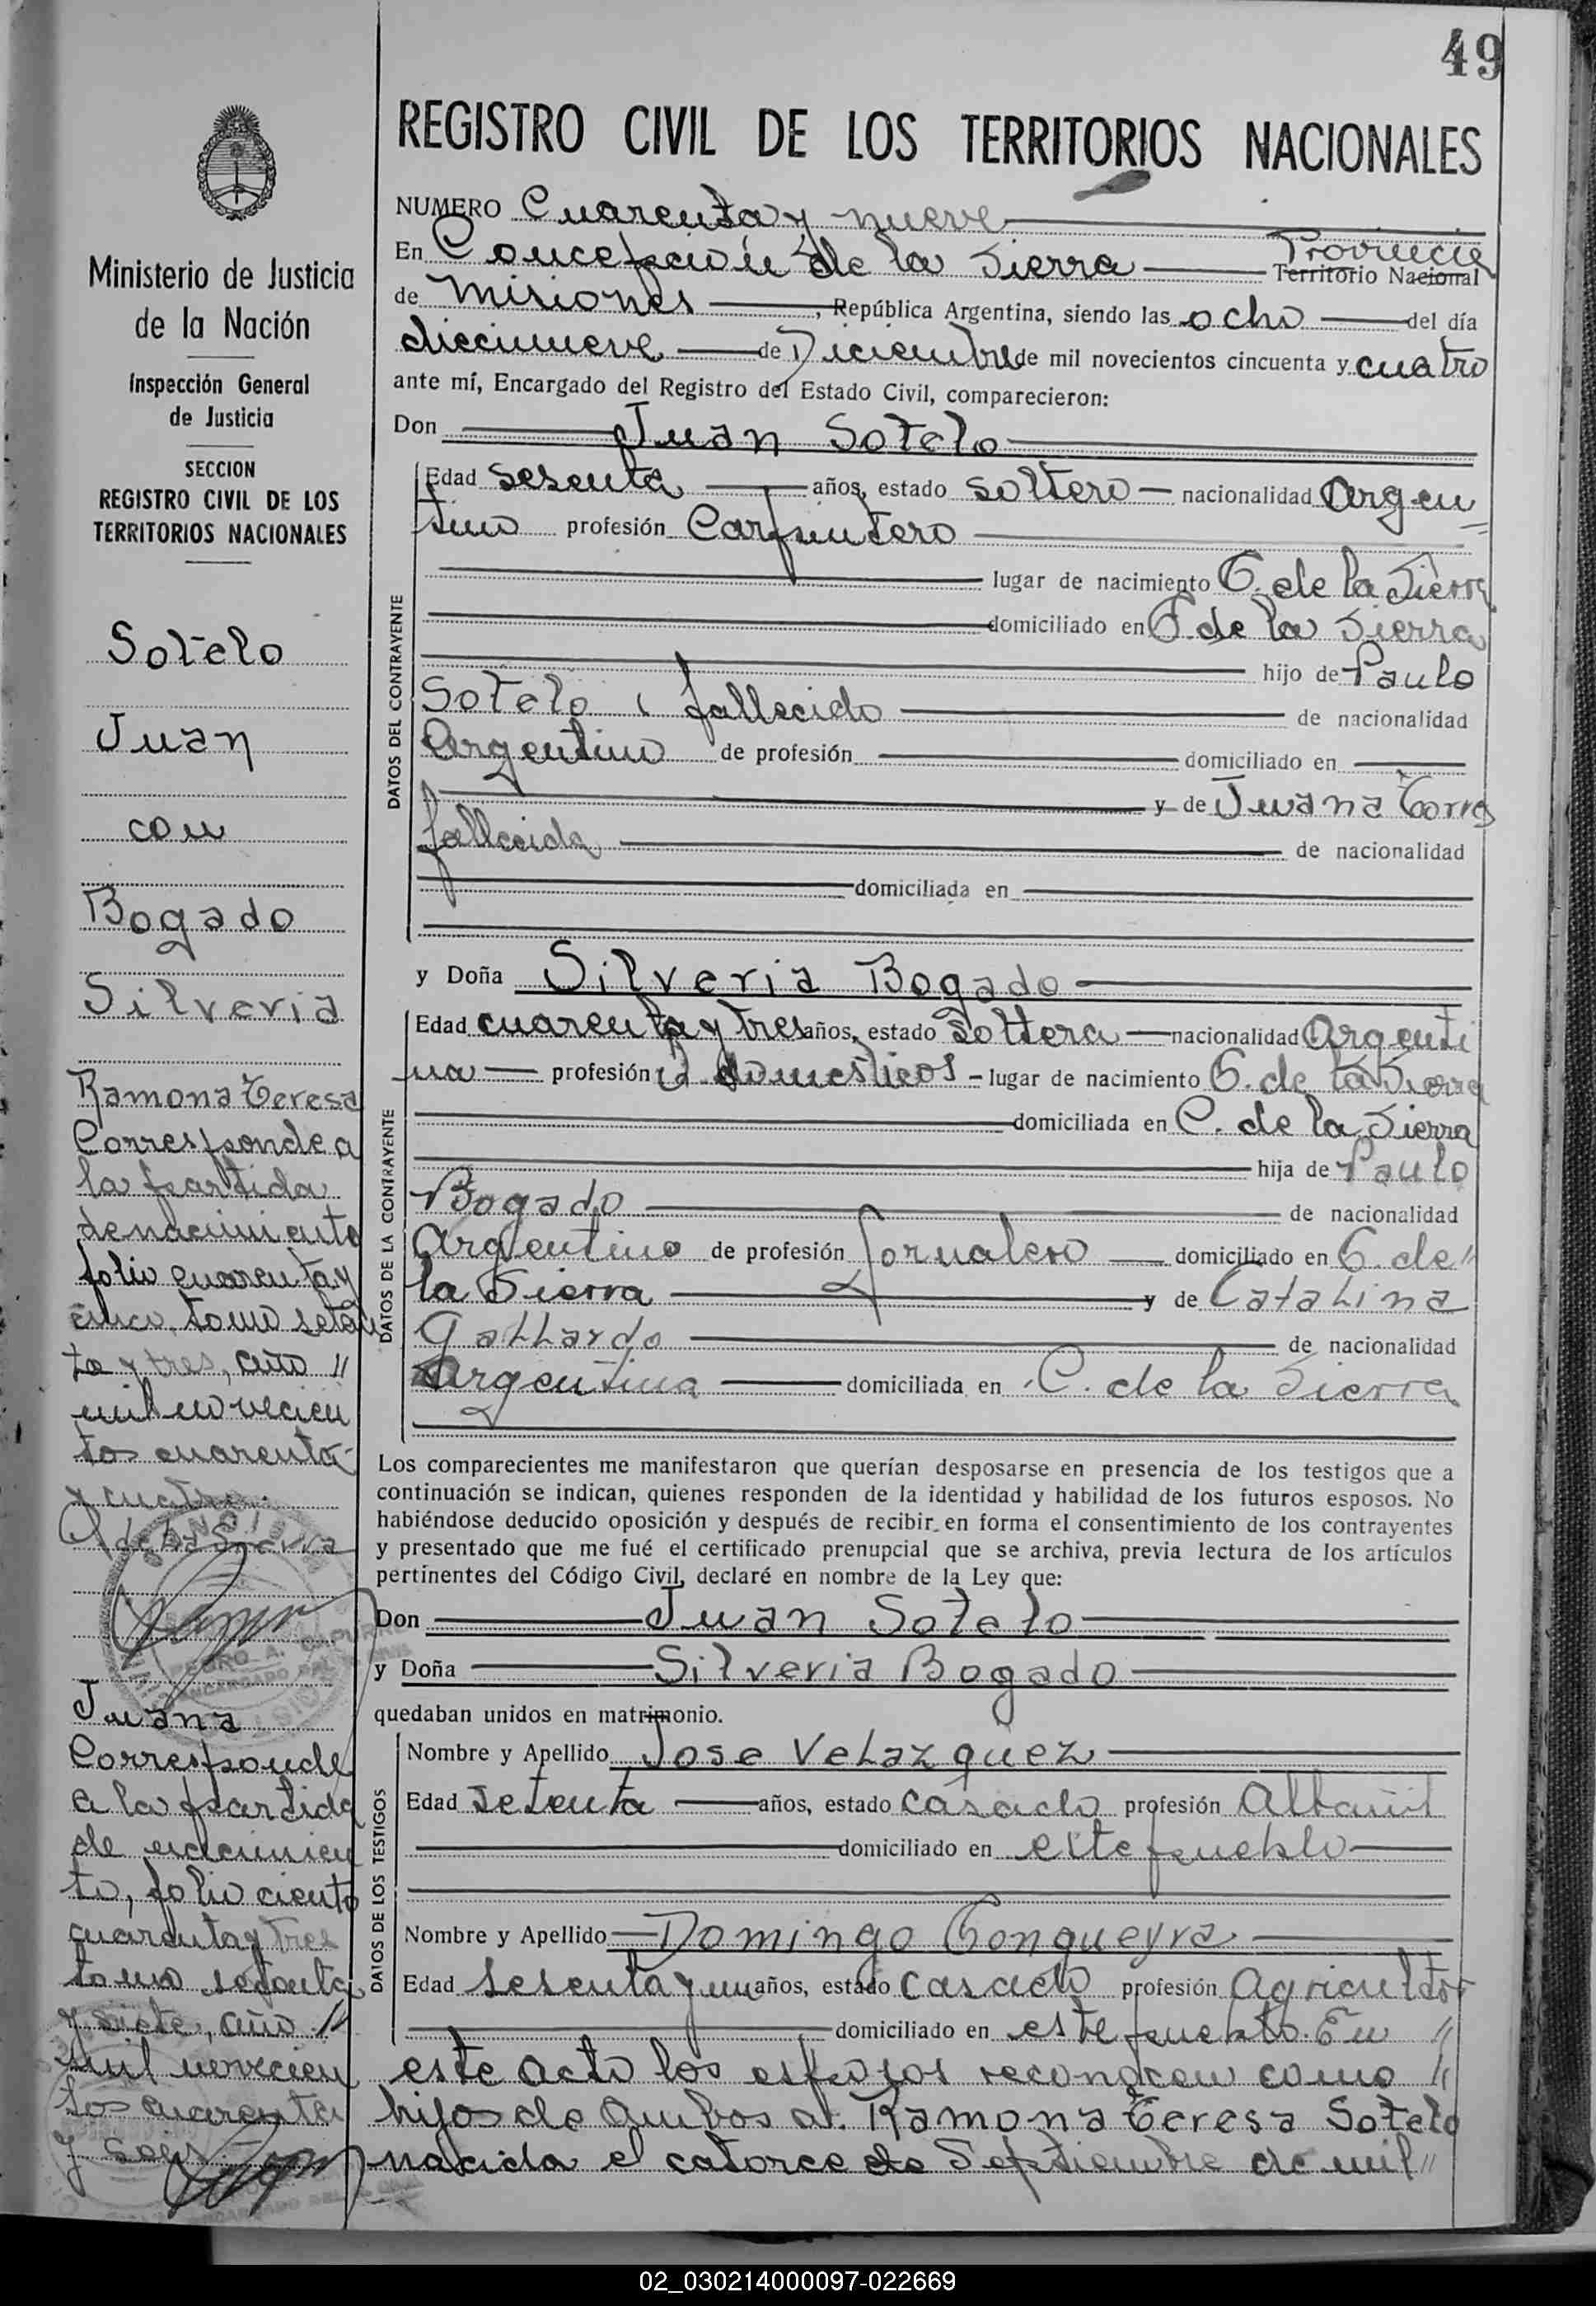 49
REGISTRO CIVIL DE LOS TERRITORIOS NACIONALES
Ministerio de Justicia
de la Nación
Inspección General
de Justicia
SECCION
REGISTRO CIVIL DE LOS
TERRITORIOS NACIONALES
Sotelo
Juan
con
Bogado
Silveria
Ramona Teresa
Corresponde a
la partida
de nacimiento
folio cuarenta y
cinco, tomo seten
ta y tres, año //
mil novecien
tos cuarenta
y cuatro.
C. de la Sierra
PEDRO A.
Juana
Corresponde
a la partida
de nacimien
to, folio ciento
cuarenta y tres
tomo setenta
y siete, año //
mil novecien
tos cuarenta
y seis
NUMERO Cuarenta y nueve
En Concepción de la Sierra Provincia
Territorio Nacional
de Misiones, República Argentina, siendo las ocho del día
diecinueve de Diciembre de mil novecientos cincuenta y cuatro
ante mí, Encargado del Registro del Estado Civil, comparecieron:
Don Juan Sotelo
DATOS DEL CONTRAYENTE
Edad sesenta años, estado soltero nacionalidad Argen
tino profesión Carpintero
lugar de nacimiento C. de la Sierra
domiciliado en C. de la Sierra
hijo de Paulo
Sotelo, fallecido de nacionalidad
Argentino de profesión domiciliado en
y de Juana Torres
fallecida de nacionalidad
domiciliada en
y Doña Silveria Bogado
DATOS DE LA CONTRAYENTE
Edad cuarenta y tres años, estado Soltera nacionalidad Argenti
na profesión q. domesticos lugar de nacimiento C. de la Sierra
domiciliada en C. de la Sierra
hija de Paulo
Bogado de nacionalidad
Argentino de profesión Jornalero domiciliado en C. de //
la Sierra y de Catalina
Gallardo de nacionalidad
Argentina domiciliada en C. de la Sierra
Los comparecientes me manifestaron que querían desposarse en presencia de los testigos que a
continuación se indican, quienes responden de la identidad y habilidad de los futuros esposos. No
habiéndose deducido oposición y después de recibir en forma el consentimiento de los contrayentes
y presentado que me fué el certificado prenupcial que se archiva, previa lectura de los artículos
pertinentes del Código Civil, declaré en nombre de la Ley que:
Don Juan Sotelo
y Doña Silveria Bogado
quedaban unidos en matrimonio.
DATOS DE LOS TESTIGOS
Nombre y Apellido Jose Velazquez
Edad setenta años, estado casado profesión Albañil
domiciliado en este pueblo
Nombre y Apellido Domingo Gongueyra
Edad sesenta y un años, estado casado profesión agricultor
domiciliado en este pueblo. En //
este acto los esposos reconocen como //
hijos de ambos a: Ramona Teresa Sotelo
nacida el catorce de Septiembre de mil //
02_030214000097-022669